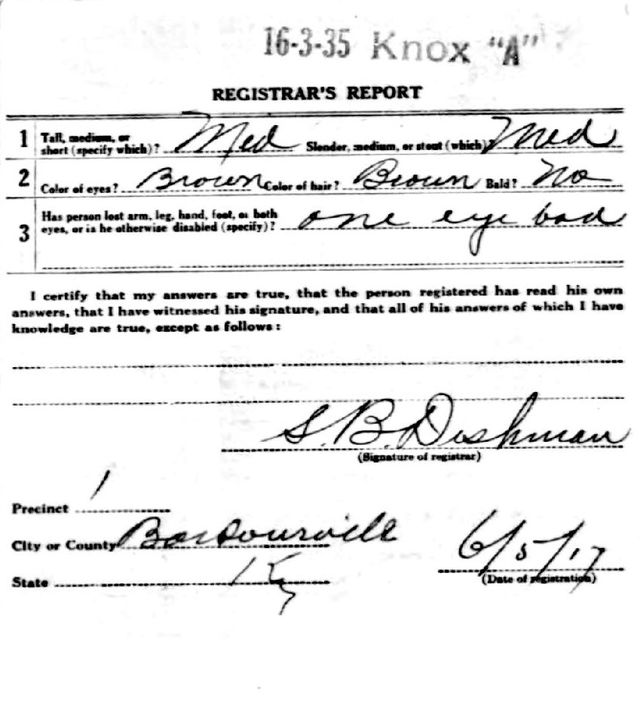 16-3-35 Knox "A"
REGISTRAR'S REPORT
1 Tall, medium, or short (specify which)? Med Slender, medium, or stout (which)? Med
2 Color of eyes? Brown Color of hair? Brown Bald? No
3 Has person lost arm, leg, hand, foot, or both eyes, or is he otherwise disabled (specify)? one eye bad
I certify that my answers are true, that the person registered has read his own
answers, that I have witnessed his signature, and that all of his answers of which I have
knowledge are true, except as follows:
S. B. Dishman
(Signature of registrar)
Precinct 1
City or County Barbourville
State Ky
6/5/17
(Date of registration)